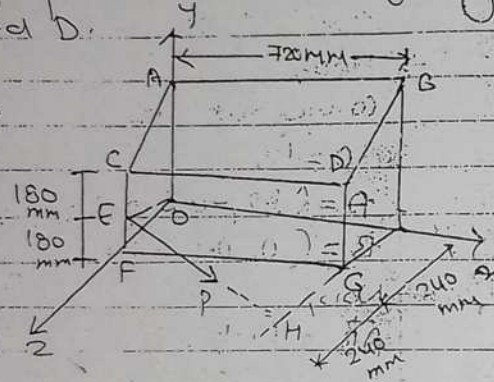 d b.
y
720mm
A
B
C
D
180
mm
E
O
180
mm
F
G
P
H
240
mm
240
mm
Z